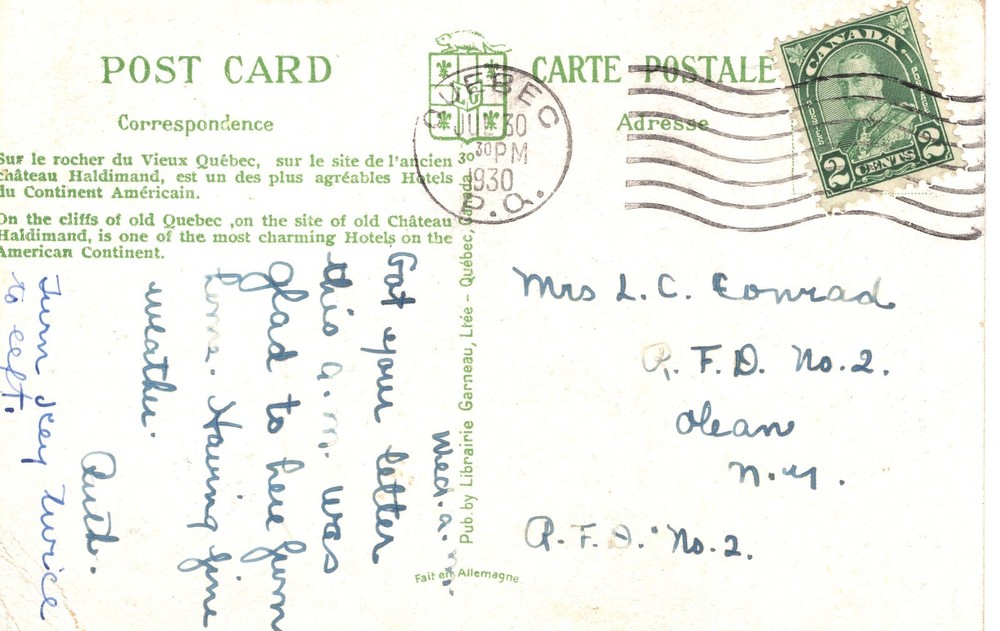 POST CARD
CARTE POSTALE
Correspondence
Adresse
Sur le rocher du Vieux Québec, sur le site de l'ancien
château Haldimand, est un des plus agréables Hotels
du Continent Américain.
On the cliffs of old Quebec ,on the site of old Château
Haldimand, is one of the most charming Hotels on the
American Continent.
QUEBEC
30
30 PM
1930
P.Q.
CANADA
2 CENTS 2
Wed. a. m.
Got your letter
this a.m. was
glad to here from
home. Having fine
weather.
Ruth.
Turn key twice
to left.
Pub. by Librairie Garneau, Ltée - Québec, Canada
Fait en Allemagne
Mrs L. C. Conrad
R. F. D. No. 2.
Olean
N.Y.
R. F. D. No. 2.